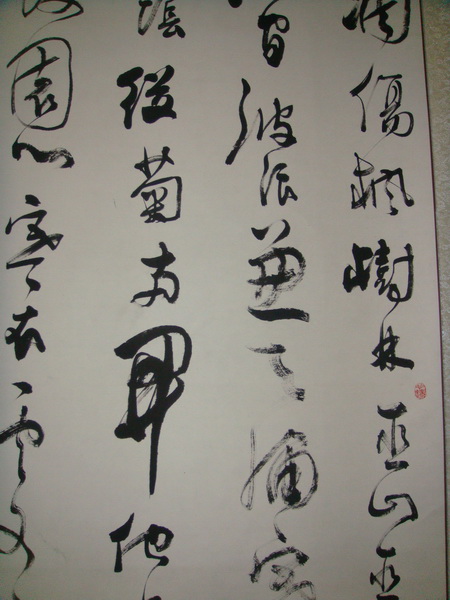 凋傷楓樹林巫山巫
間波浪兼天湧塞
陰叢菊兩開他
園心寒衣處